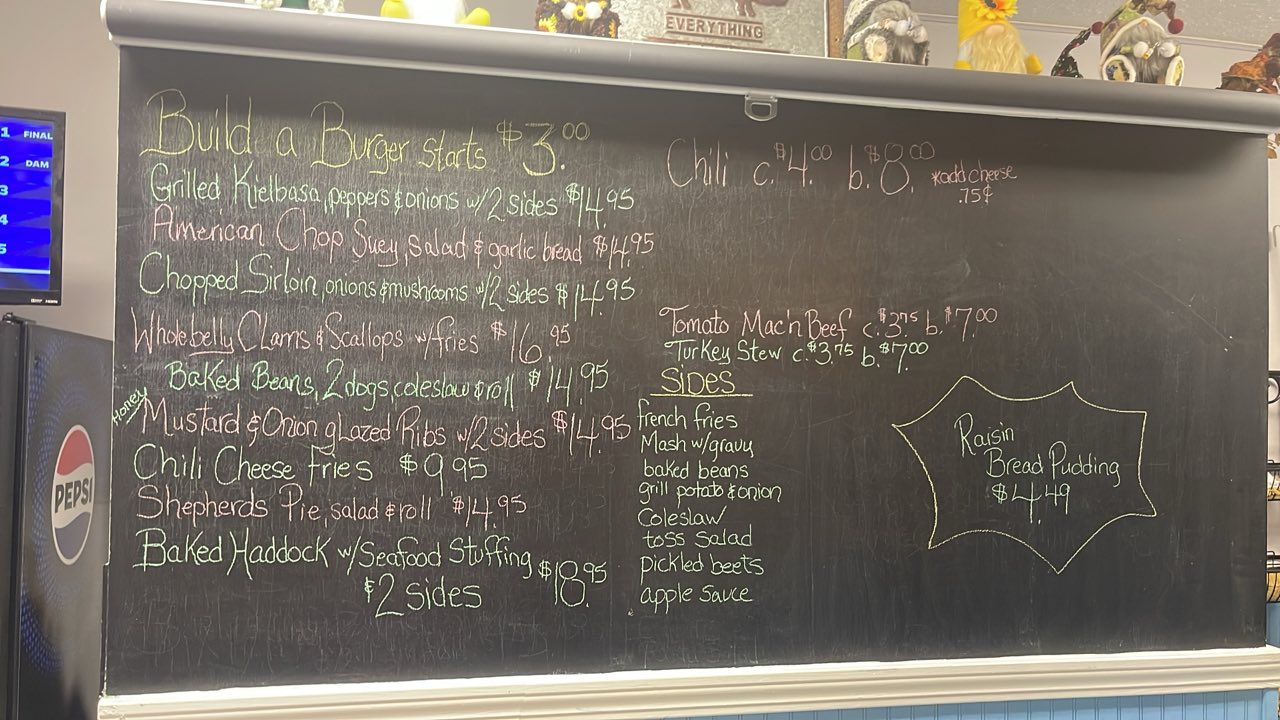 EVERYTHING
1 FINAL
2 DAM
3
4
5
PEPSI
Build a Burger starts $3.00
Grilled Kielbasa, peppers & onions w/2 sides $14.95
American Chop Suey, salad & garlic bread $14.95
Chopped Sirloin, onions & mushrooms w/2 sides $14.95
Wholebelly Clams & Scallops w/fries $16.95
Baked Beans, 2 dogs, coleslaw & roll $14.95
Honey
Mustard & Onion glazed Ribs w/2 sides $14.95
Chili Cheese Fries $9.95
Shepherds Pie, salad & roll $14.95
Baked Haddock w/Seafood Stuffing
& 2 sides $18.95
Chili c. $4.00 b. $8.00 *add cheese
.75¢
Tomato Mac'n Beef c. $3.75 b. $7.00
Turkey Stew c. $3.75 b. $7.00
Sides
french fries
Mash w/gravy
baked beans
grill potato & onion
Coleslaw
toss salad
pickled beets
apple sauce
Raisin
Bread Pudding
$4.49